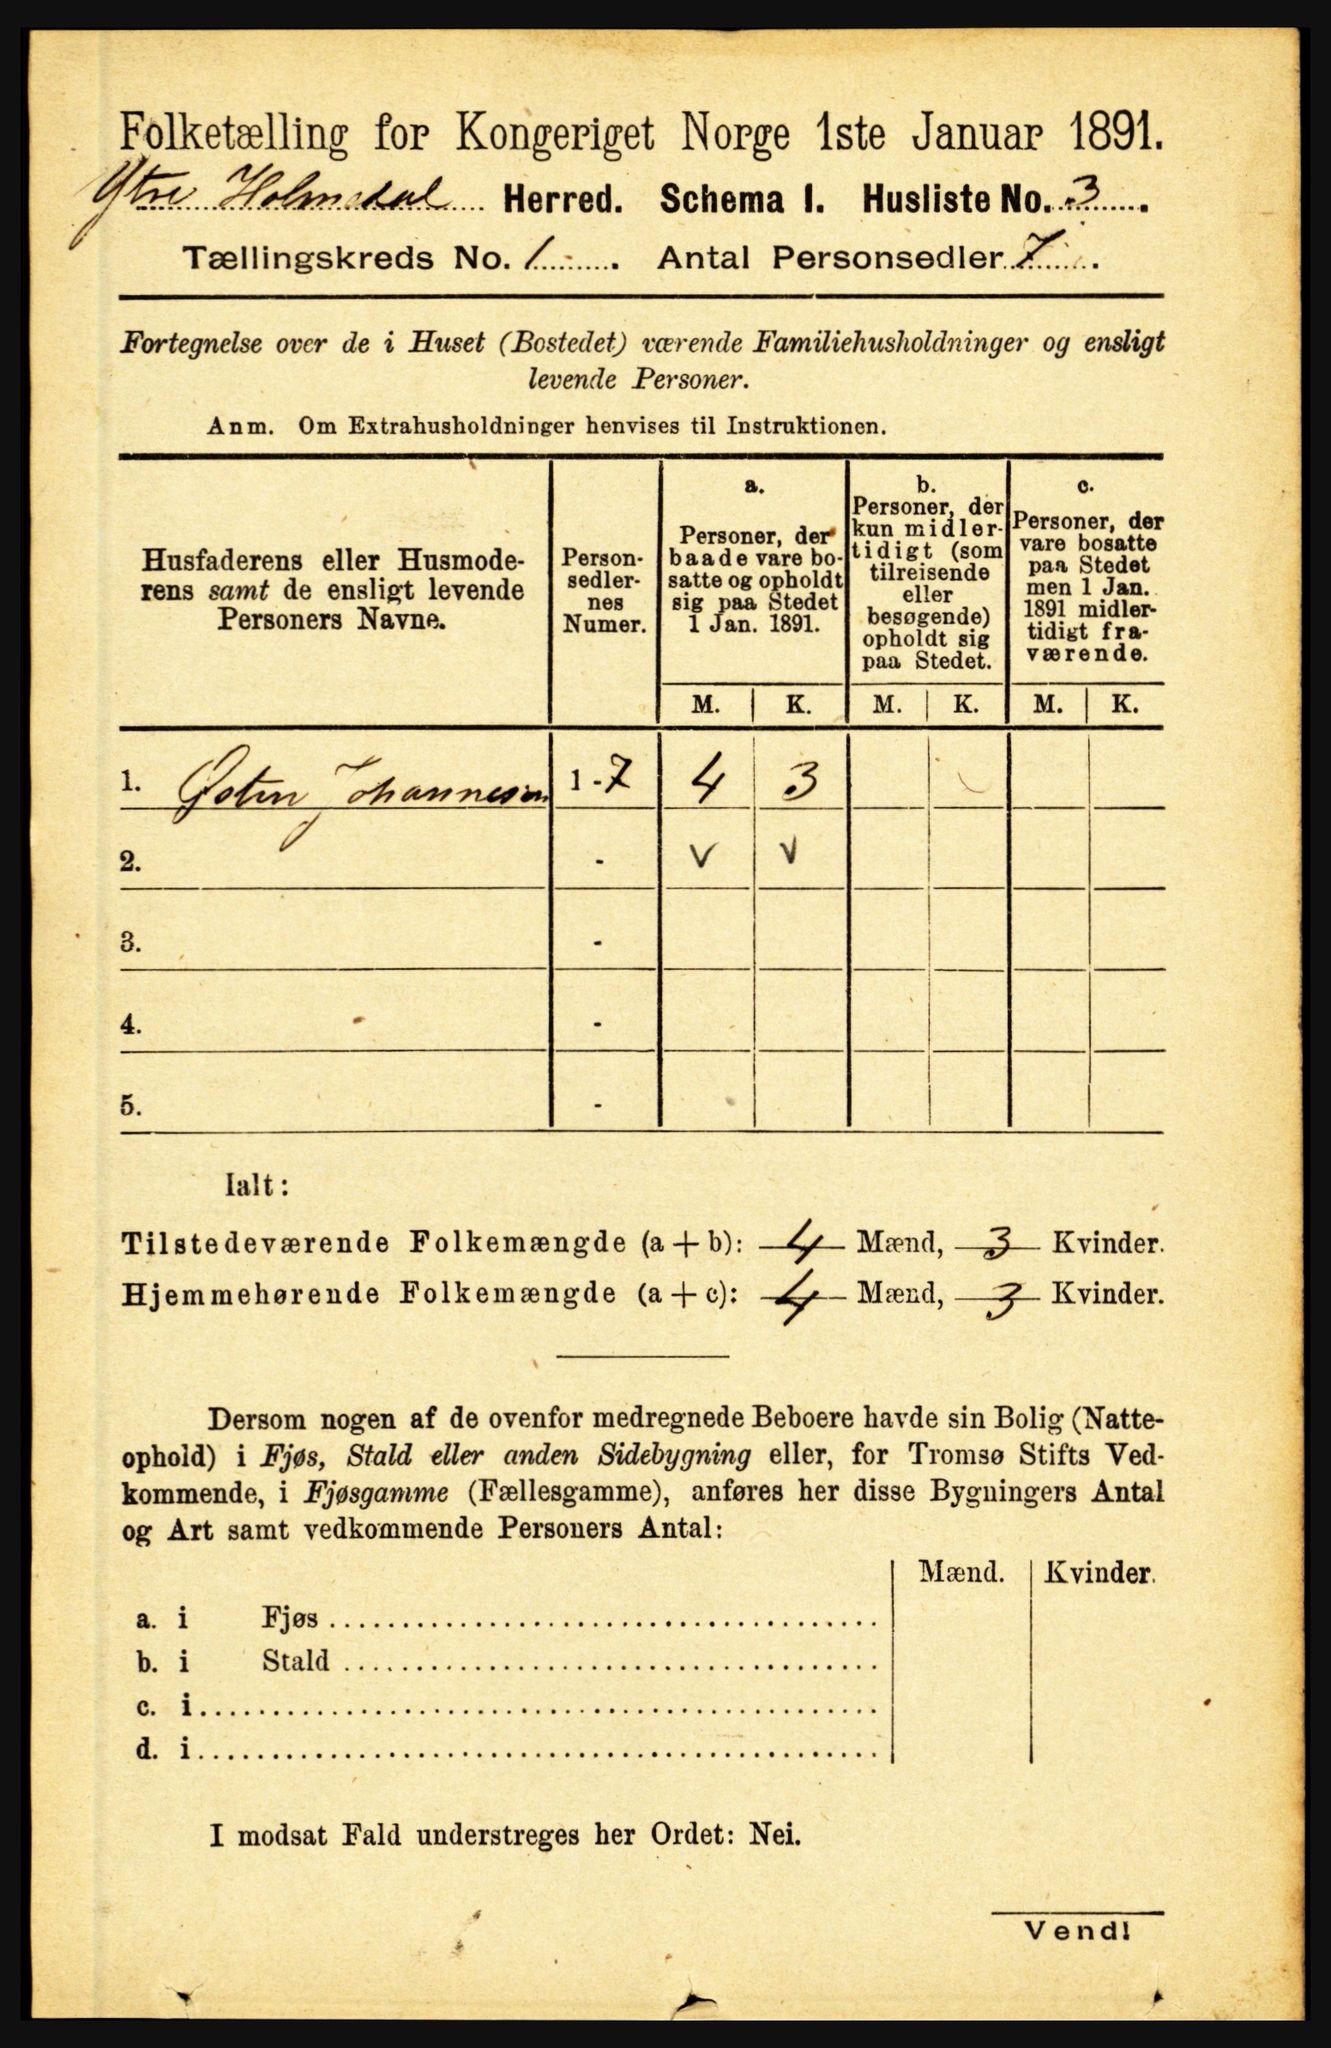 Folketælling for Kongeriget Norge 1ste Januar 1891.
Ytre Holmedal Herred. Schema I. Husliste No. 3.
Tællingskreds No. 1. Antal Personsedler 7.
Fortegnelse over de i Huset (Bostedet) værende Familiehusholdninger og ensligt
levende Personer.
Anm. Om Extrahusholdninger henvises til Instruktionen.
Husfaderens eller Husmode-
rens samt de ensligt levende
Personers Navne.
Person-
sedler-
nes
Numer.
a.
Personer, der
baade vare bo-
satte og opholdt
sig paa Stedet
1 Jan. 1891.
b.
Personer, der
kun midler-
tidigt (som
tilreisende
eller
besøgende)
opholdt sig
paa Stedet.
c.
Personer, der
vare bosatte
paa Stedet
men 1 Jan.
1891 midler-
tidigt fra-
værende.
M. K. M. K. M. K.
1. Østen Johannesen 1 - 7 4 3
2. - v v
3. -
4. -
5. -
Ialt:
Tilstedeværende Folkemængde (a + b): 4 Mænd, 3 Kvinder.
Hjemmehørende Folkemængde (a + c): 4 Mænd, 3 Kvinder.
Dersom nogen af de ovenfor medregnede Beboere havde sin Bolig (Natte-
ophold) i Fjøs, Stald eller anden Sidebygning eller, for Tromsø Stifts Ved-
kommende, i Fjøsgamme (Fællesgamme), anføres her disse Bygningers Antal
og Art samt vedkommende Personers Antal:
Mænd. Kvinder.
a. i Fjøs
b. i Stald
c. i
d. i
I modsat Fald understreges her Ordet: Nei.
Vend!